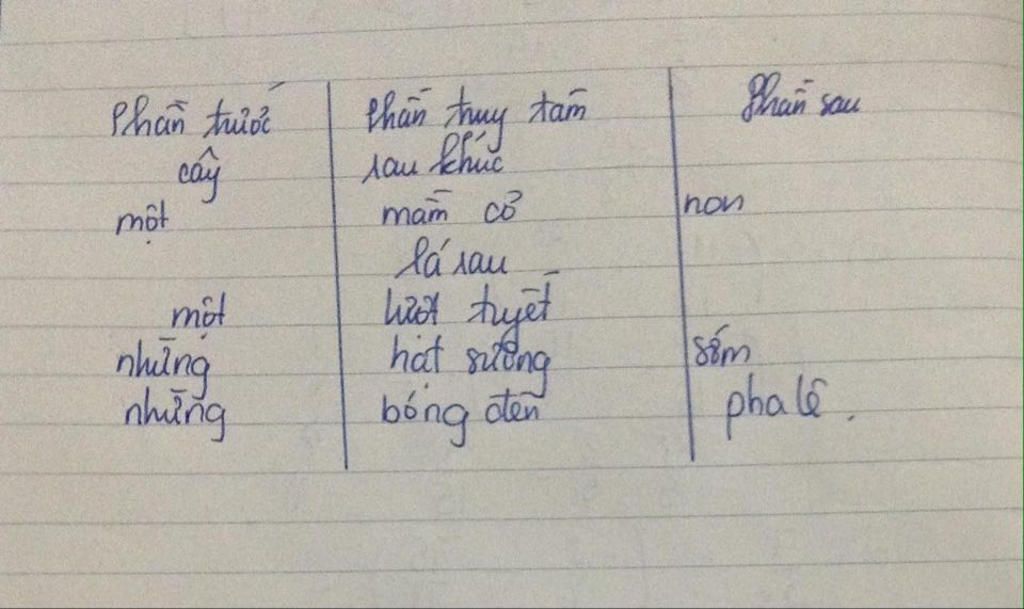 Phần trước Phần truy tâm Phần sau
cây rau khúc
một mầm cỏ non
lá rau
một lượt tuyết
những hạt sương sớm
những bóng đèn pha lê.